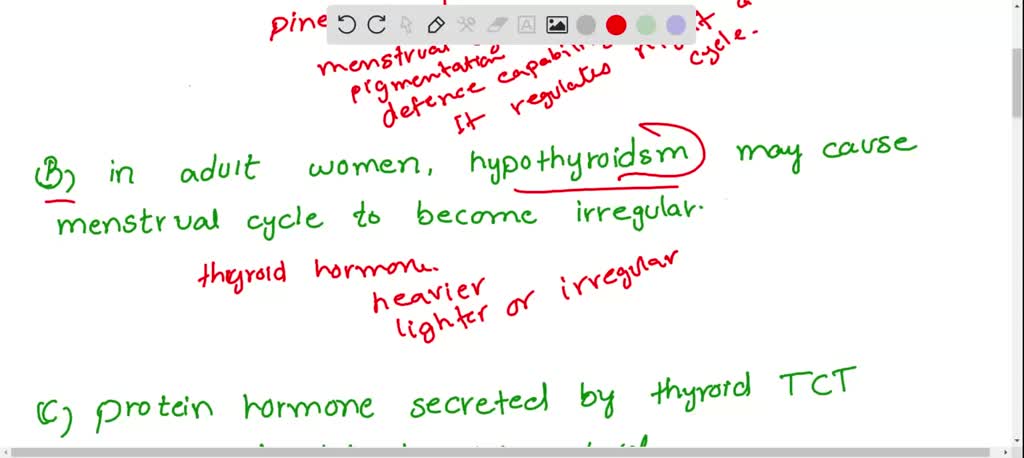 pine
menstrual
pigmentation
defence capabili
It regulates
cycle.
B) in adult women, hypothyroidsm may cause
menstrual cycle to become irregular.
thyroid hormone.
heavier
lighter or irregular
C) protein hormone secreted by thyroid TCT